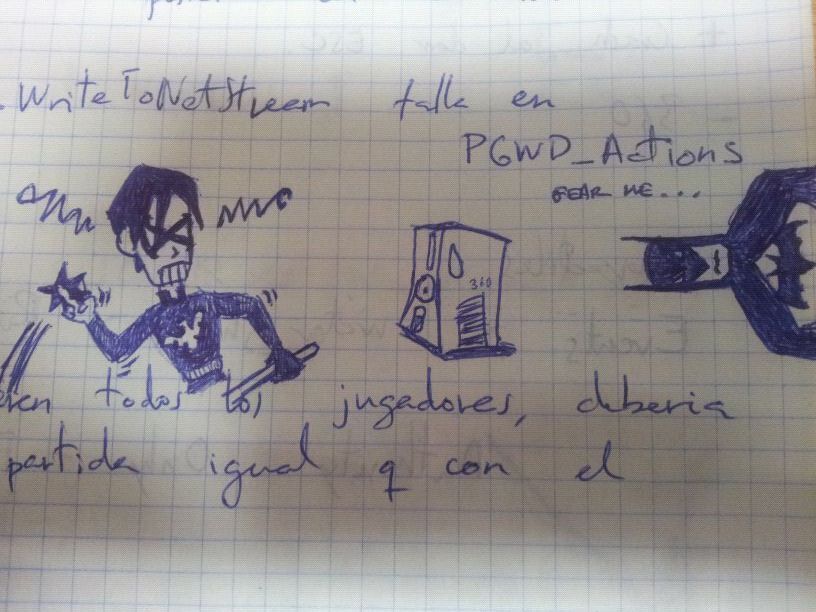 . WriteToNetStream falla en
PGWD_Actions
FEAR ME...
360
todos los jugadores, deberia
partida igual q con el